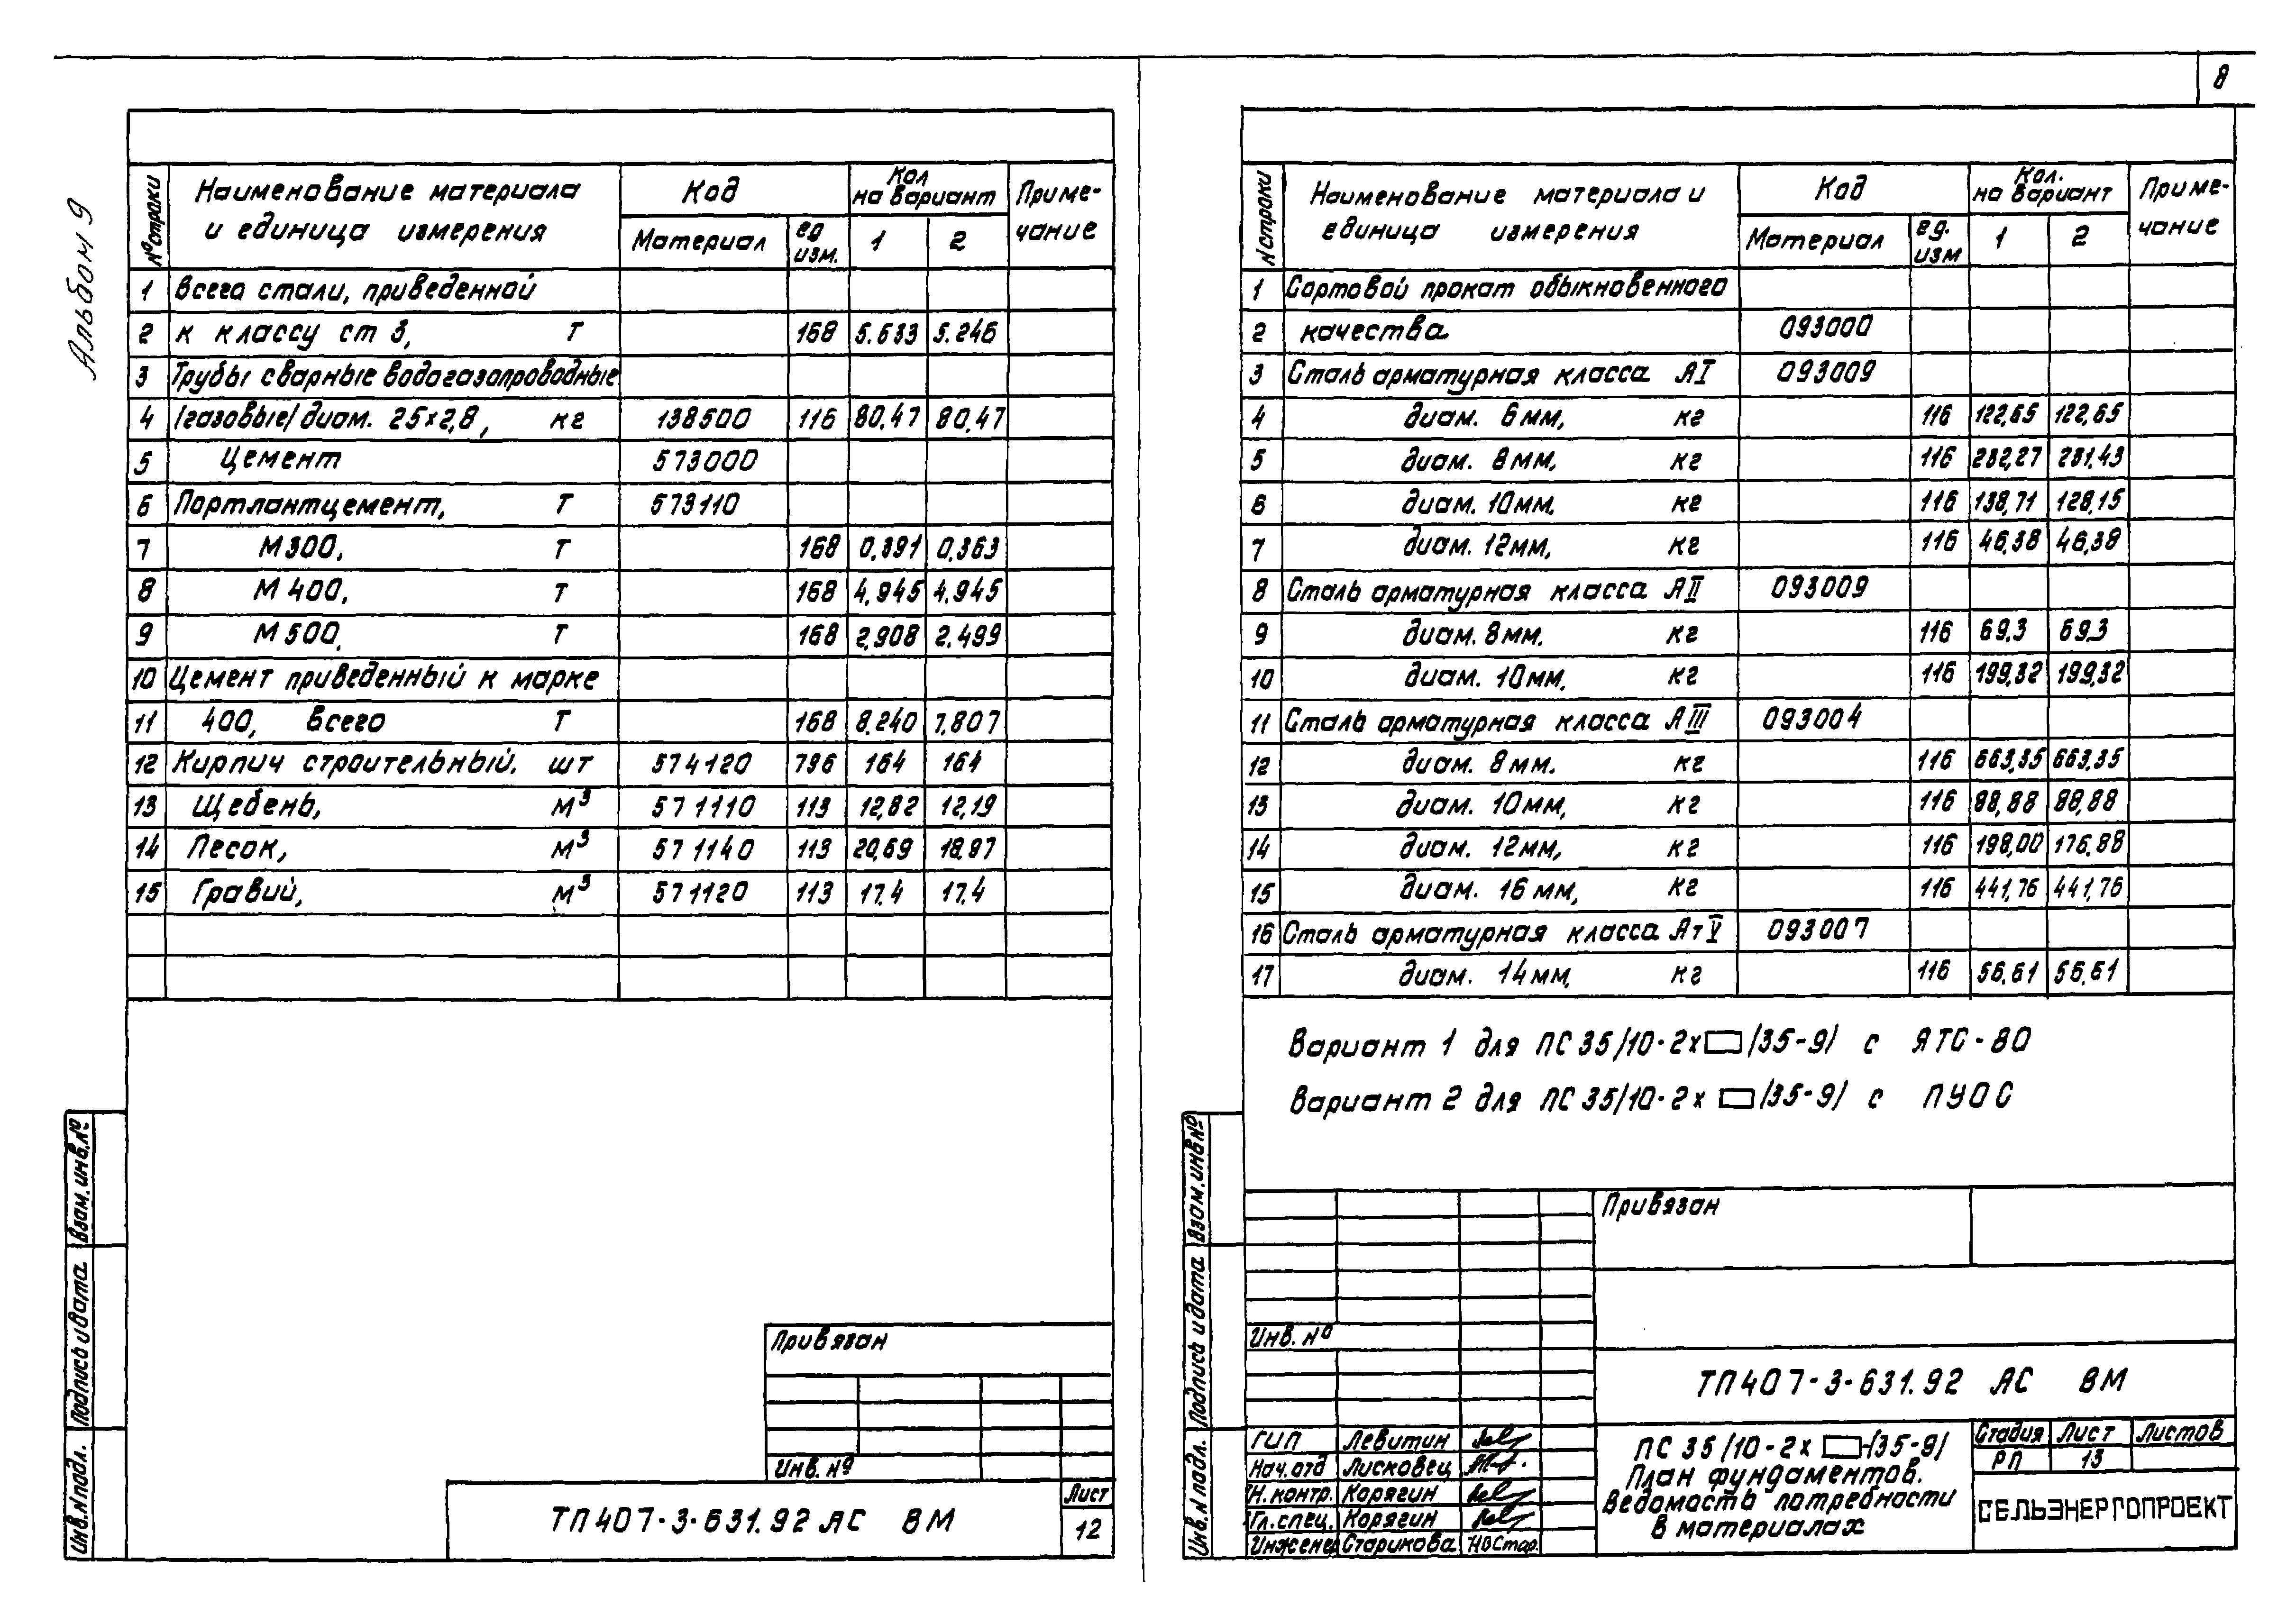 8
Альбом 9
№ строки | Наименование материала и единица измерения | Код | Кол на вариант | Приме-чание
Материал | ед изм. | 1 | 2
1 Всего стали, приведенной
2 к классу ст 3, Т 168 5.633 5.246
3 Трубы сварные водогазопроводные
4 /газовые/ диам. 25×2,8, кг 138500 116 80.47 80.47
5 Цемент 573000
6 Портлантцемент, Т 573110
7 М300, Т 168 0.391 0.363
8 М400, Т 168 4.945 4.945
9 М500, Т 168 2.908 2.499
10 Цемент приведенный к марке
11 400, всего Т 168 8.240 7.807
12 Кирпич строительный. шт 574120 796 164 164
13 Щебень, м³ 571110 113 12,82 12,19
14 Песок, м³ 571140 113 20,69 18,97
15 Гравий, м³ 571120 113 17.4 17.4
Взам. инв. №
Подпись и дата
Инв. № подл.
Привязан
Инв. №
ТП 407-3-631.92 АС ВМ
Лист
12
N строки | Наименование материала и единица измерения | Код | Кол. на вариант | Приме-чание
Материал | ед. изм | 1 | 2
1 Сортовой прокат обыкновенного
2 качества 093000
3 Сталь арматурная класса АI 093009
4 диам. 6мм, кг 116 122,65 122,65
5 диам. 8мм, кг 116 232,27 231.43
6 диам. 10мм. кг 116 138,71 128,15
7 диам. 12мм, кг 116 46,38 46,38
8 Сталь арматурная класса АII 093009
9 диам. 8мм. кг 116 69.3 69.3
10 диам. 10мм. кг 116 199,32 199,32
11 Сталь арматурная класса АIII 093004
12 диам. 8мм. кг 116 663,35 663,35
13 диам. 10мм, кг 116 88,88 88,88
14 диам. 12мм, кг 116 198,00 176,88
15 диам. 16мм, кг 116 441,76 441,76
16 Сталь арматурная класса АтV 093007
17 диам. 14мм, кг 116 56,61 56,61
Вариант 1 для ПС 35/10-2х□/35-9/ с ЯТС-80
Вариант 2 для ПС 35/10-2х□/35-9/ с ПУОС
Взам. инв №
Подпись и дата
Инв. N подл.
Привязан
Инв. №
ТП 407-3-631.92 АС ВМ
ГИП Левитин
Нач. отд Лисковец
Н. контр. Корягин
Гл. спец. Корягин
Инженер Старикова НВСтар.
ПС 35/10-2х□-/35-9/
План фундаментов.
Ведомость потребности
в материалах
Стадия Лист Листов
РП 13
СЕЛЬЭНЕРГОПРОЕКТ